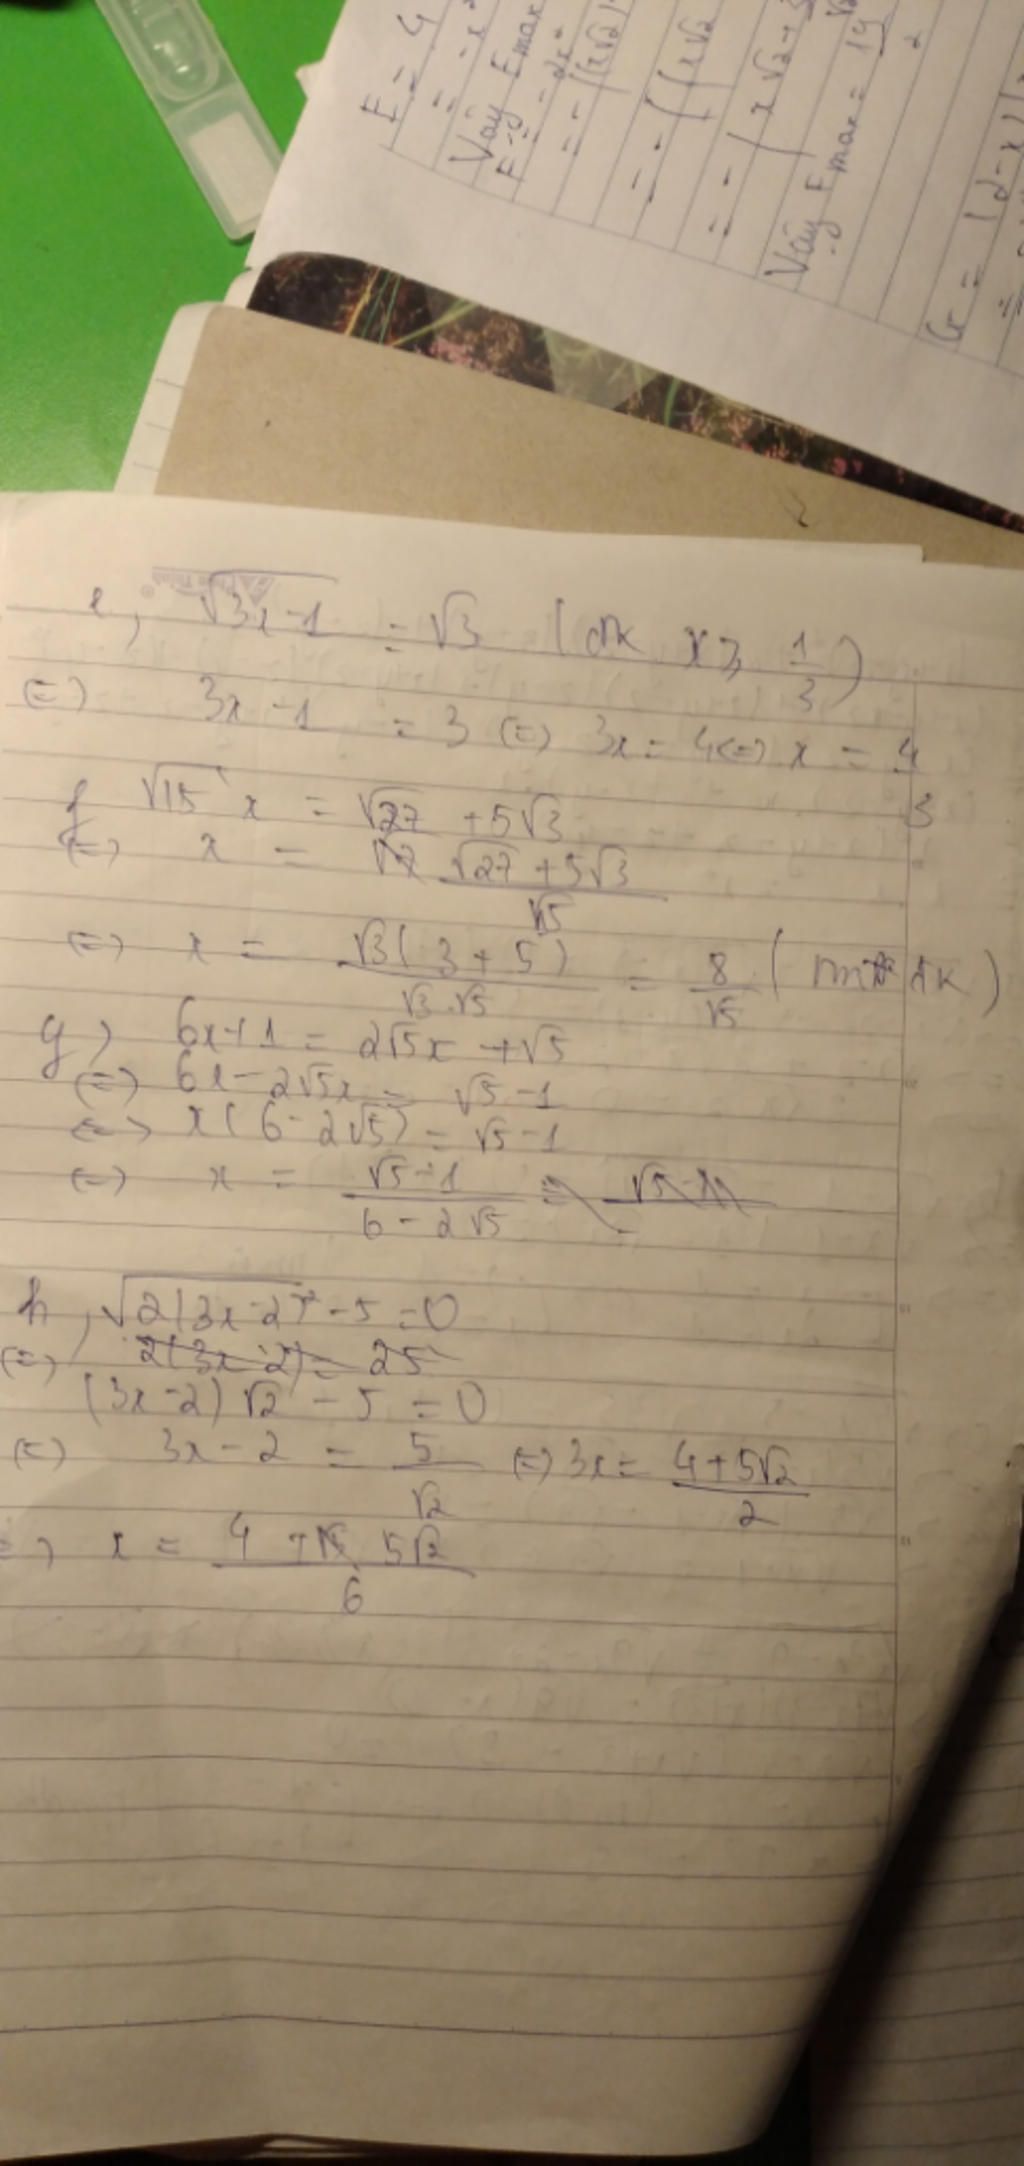 F = 4
= - x²
Vậy Fmax
F = - 2x²
= - [(x√2)
= - [(x√2
= - ( x√2 +
Vậy Fmax = 19
2
(x = (2-x)
e, √3x-1 = √3 (đk x ≥ 1/3)
(=) 3x-1 = 3 (=) 3x = 4 (=) x = 4/3
f √15 x = √27 + 5√3
(=) x = √27 + 5√3 / √5
(=) x = √3(3+5) / √3.√5 = 8/√5 ( tm đk )
g) 6x+1 = 2√5x + √5
(=) 6x - 2√5x = √5 - 1
(=) x(6-2√5) = √5 - 1
(=) x = √5-1 / 6-2√5 = √5-1
h, √2(3x-2)² - 5 = 0
(=) 2(3x-2) = 25
(3x-2)√2 - 5 = 0
(=) 3x-2 = 5/√2 (=) 3x = 4+5√2 / 2
=) x = 4 + 5√2 / 6